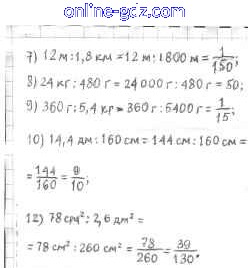 online-gdz.com
7) 12 м : 1,8 км = 12 м : 1800 м = 1/150;
8) 24 кг : 480 г = 24 000 г : 480 г = 50;
9) 360 г : 5,4 кг = 360 г : 5400 г = 1/15;
10) 14,4 дм : 160 см = 144 см : 160 см =
= 144/160 = 9/10;
12) 78 см² : 2,6 дм² =
= 78 см² : 260 см² = 78/260 = 39/130.